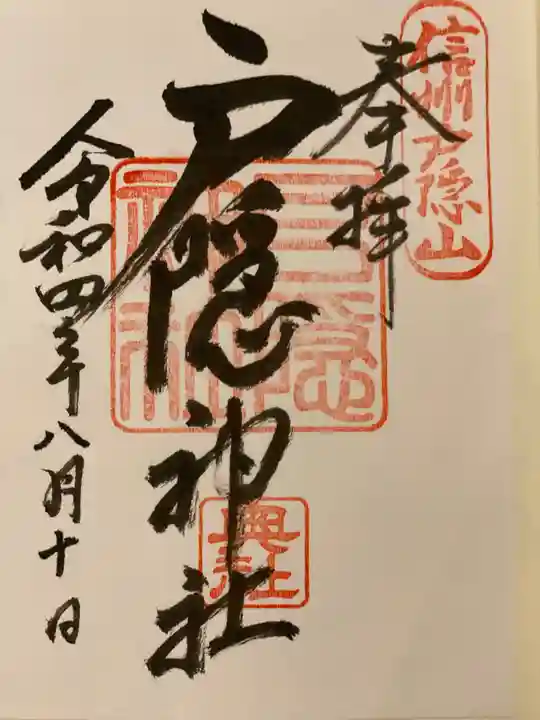 信州戸隠山
奉拝
戸隠神社
戸隠神社
奥社
令和四年八月十日